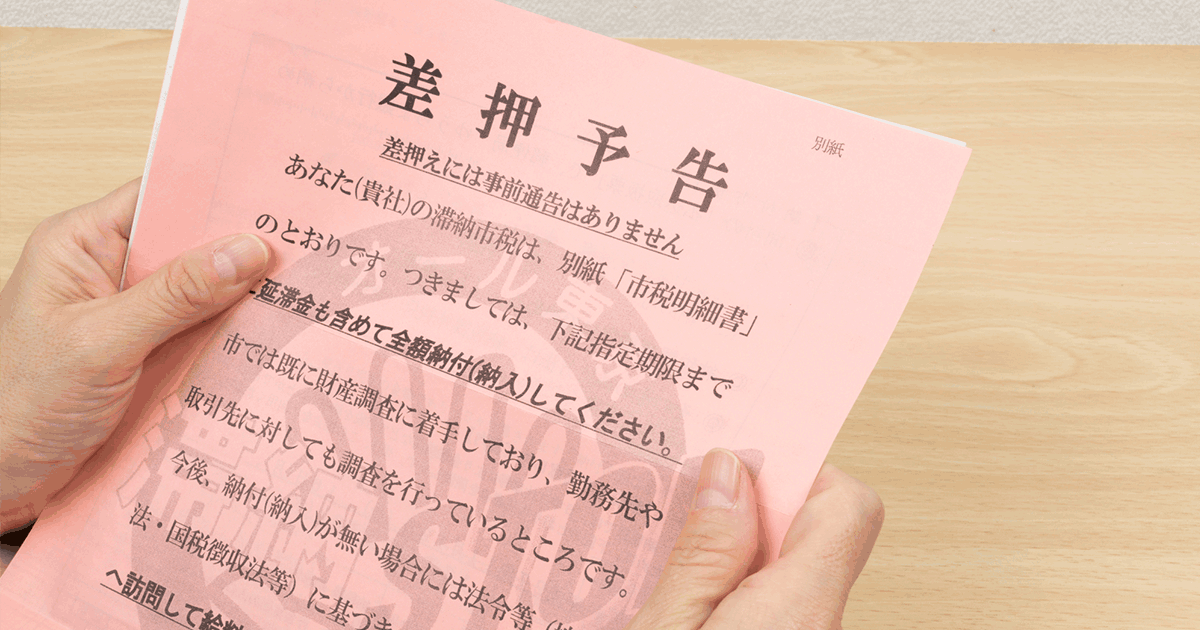 別紙
差押予告
差押えには事前通告はありません
あなた(貴社)の滞納市税は、別紙「市税明細書」
のとおりです。つきましては、下記指定期限まで
に延滞金も含めて全額納付(納入)してください。
市では既に財産調査に着手しており、勤務先や
取引先に対しても調査を行っているところです。
今後、納付(納入)が無い場合には法令等(
法・国税徴収法等)に基づき
へ訪問して給料
オール東京
滞納STOP